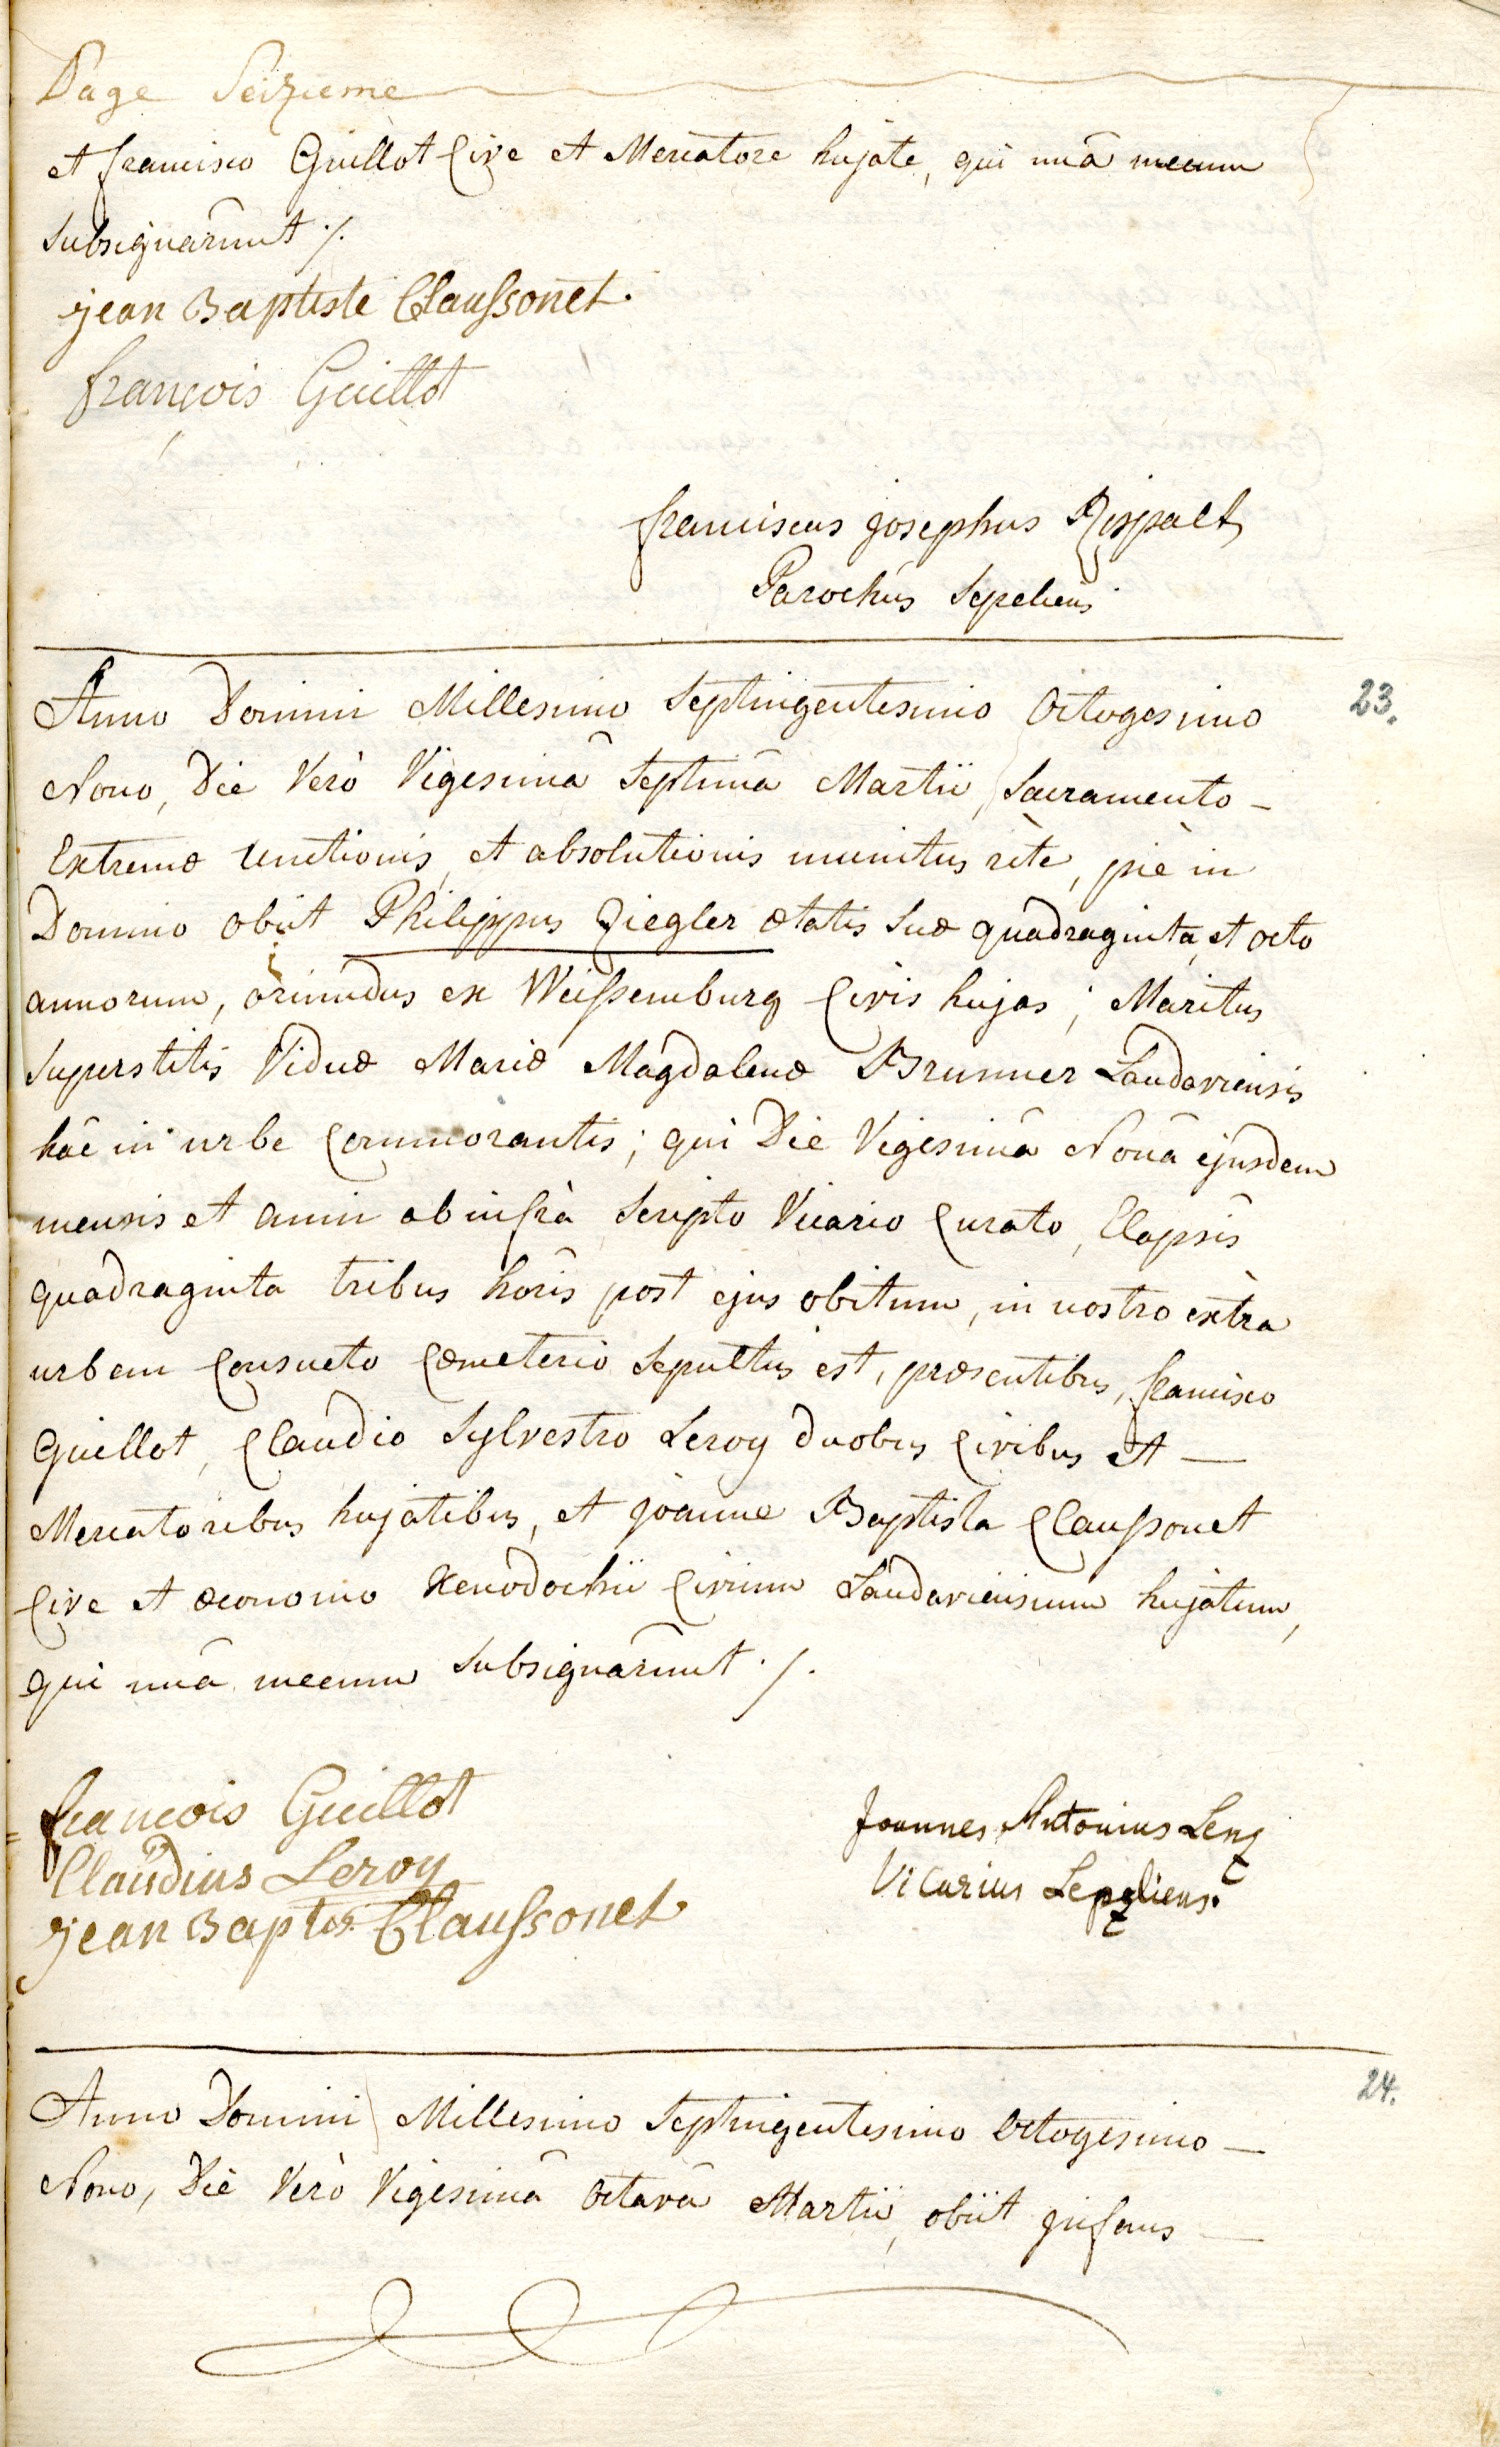 Page Seizieme
et francisco Guillot Cive et Mercatore hujate, qui unâ mecum
subsignarûnt ./.
jean Baptiste Claussonet.
françois Guillot
franciscus josephus
Parochus Sepeliens
Anno Domini Millesimo Septingentesimo Octogesimo
23.
Nono, Die Verò Vigesimâ Septimâ Martii, Sacramento –
Extremæ Unctionis, et absolutionis munitus ritè, piè in
Domino obiit Philippus Ziegler ætatis suæ quadraginta et octo
annorum, oriundus ex Weissemburg Civis hujas; Maritus
Superstitis Viduæ Mariæ Magdalenæ Brunner Landaviensis
hâc in urbe Commorantis; qui Die Vigesimâ Nonâ ejusdem
mensis et anni ab infrà Scripto Vicario Curato, Elapsis
quadraginta tribus horis post ejus obitum, in nostro extrà
urbem Consueto Cœmeterio Sepultus est, præsentibus, francisco
Guillot, Claudio Sylvestro Leroy duobus Civibus et —
Mercatoribus hujatibus, et joanne Baptista Claussonet
Cive et œconomo Xenodochii Civium Landaviensium hujatum,
qui unâ mecum subsignarûnt ./.
françois Guillot
Joannes Antonius Lenz
Claudius Leroy
Vicarius Sepeliens.
jean Baptis. Claussonet
Anno Domini Millesimo Septingentesimo Octogesimo —
24.
Nono, Die Verò Vigesimâ Octavâ Martii, obiit infans —